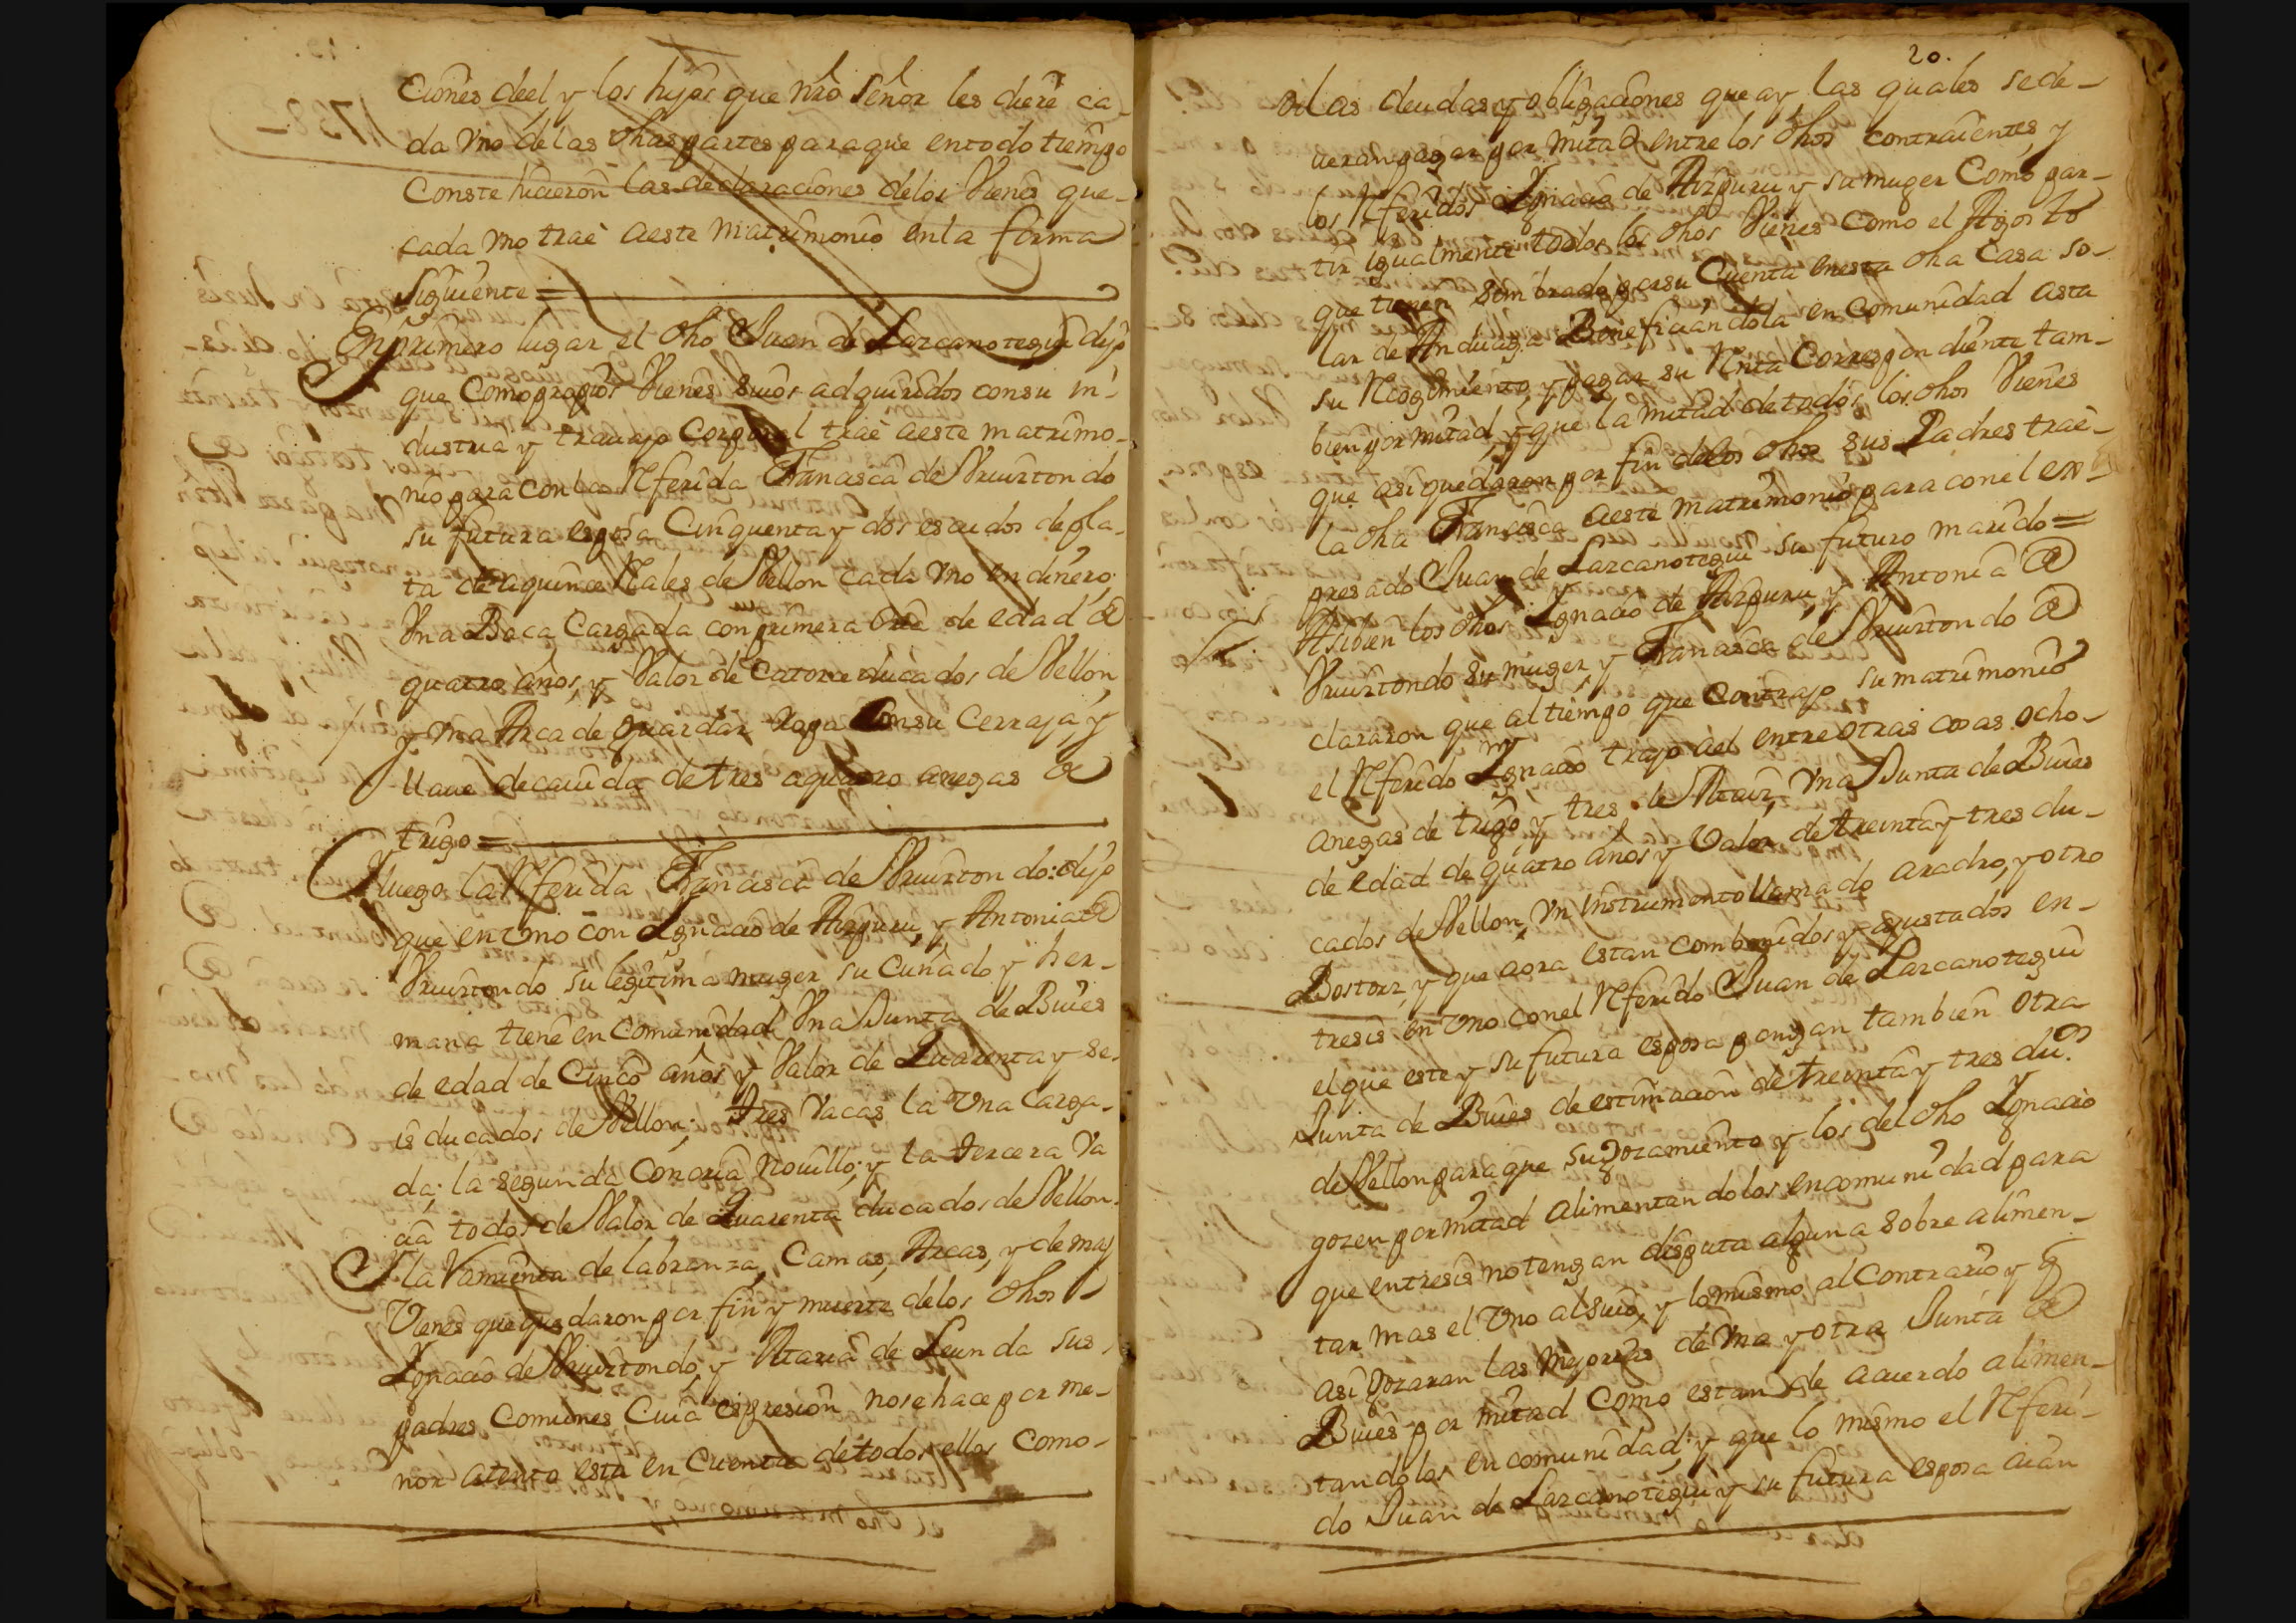 ciones deel y los hijos que nrō Señor les diere ca
da vno de las dhas partes para que en todo tiempo
Conste hicieron las declaraciones delos Vienes que
cada vno trae aeste matrimonio en la forma
Siguiente =
En primero lugar el dho Juan de Larcanotegui dijo
que Como propios Vienes suios adquiridos consu in-
dustria y trauajo Corporal trae aeste matrimo-
nio para con la Rferida Francisca de Vruirtondo
su futura esposa Cinquenta y dos escudos de pla-
ta de aquince Rales de Vellon cada vno en dinero;
Vna Baca Cargada con primera cria de edad de
quatro años, y Valor de Catorce ducados de Vellon,
y vna Arca de guardar ropa Con su Cerraja, y
llaue decauida de tres aquatro anegas de
trigo =
Y luego la Rferida Francisca de Vruirtondo: dijo
que en vno con Ignacio de Aizpuru, y Antonia de
Vruirtondo su legitima muger su cuñado y her-
mana tiene en Comunidad Vna Junta de Buies
de edad de Cinco años y Valor de Quarenta y se-
is ducados de Vellon; tres Vacas la vna Carga-
da; la segunda Con cria nouillo; y la tercera Va
cia todos de Valor de Quarenta ducados de Vellon.
Y la Ramienta de labranza, Camas, Arcas, y demas
Vienes que quedaron por fin y muerte delos dhos
Ignacio de Vruirtondo, y Maria de Leunda sus
padres Comunes Cuia espresion nose hace por me-
nor atento esta en Cuenta de todos ellos Como-
20.
delas deudas y obligaciones que ay las quales sede-
ueran pagar por mitad entre los dhos contraientes, y
los Rferidos Ignacio de Aizpuru y su muger Como par-
tir igualmente todos los dhos Vienes Como el Agosto
que tienen sembrado por su Cuenta en esta dha Casa so-
lar de Anduaga Beneficiandola en Comunidad asta
su Rcogimiento y pagar su Rnta Correspondiente tam-
bien por mitad, y que la mitad de todos los dhos Vienes
que asi quedaron por fin delos dhos sus Padres trae-
la dha Francisca aeste matrimonio para con el ex-
presado Juan de Larcanotegui su futuro marido =
Asibien los dhos Ignacio de Aizpuru, y Antonia de
Vruirtondo su muger y Francisca de Vruirtondo de
clararon que al tiempo que Contrajo su matrimonio
el Rferido Ignacio trajo ael entre otras cosas ocho-
anegas de trigo, y tres de Maiz, Vna Junta de Buies
de edad de quatro años y Valor de treinta y tres du-
cados de Vellon, Vn instrumento llamado aradro, y otro
Bostorz, y que aora estan combenidos y ajustados en-
tresis en vno con el Rferido Juan de Larcanotegui
el que este y su futura esposa pongan tambien otra
Junta de Buies de estimacion de treinta y tres du.os
de Vellon para que su gozamiento y los del dho Ignacio
gozen por mitad alimentandolos en comunidad para
que entresis no tengan disputa alguna sobre alimen-
tar mas el vno alsuio, y lo mismo al Contrario y q̃
asi gozaran las Mejorias de vna y otra Junta de
Buies por mitad Como estan de acuerdo alimen-
tandolos en comunidad; y que lo mismo el Rferi-
do Juan de Larcanotegui y su futura esposa aian